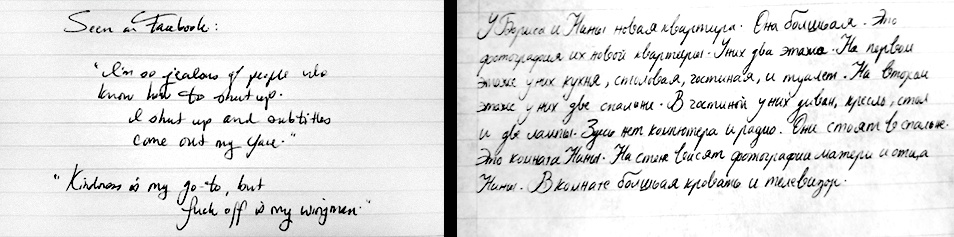 Seen on Facebook:
"I'm so jealous of people who
know how to shut up.
I shut up and subtitles
come out my face."
"Kindness is my go-to, but
fuck off is my wingman."
У Бориса и Нины новая квартира. Она большая. Это
фотография их новой квартиры. У них два этажа. На первом
этаже у них кухня, столовая, гостиная, и туалет. На втором
этаже у них две спальни. В гостиной у них диван, кресль, стол
и две лампы. Здесь нет компютера и радио. Они стоят в спальне.
Это комната Нины. На стене висят фотографии матери и отца
Нины. В комнате большая кровать и телевизор.